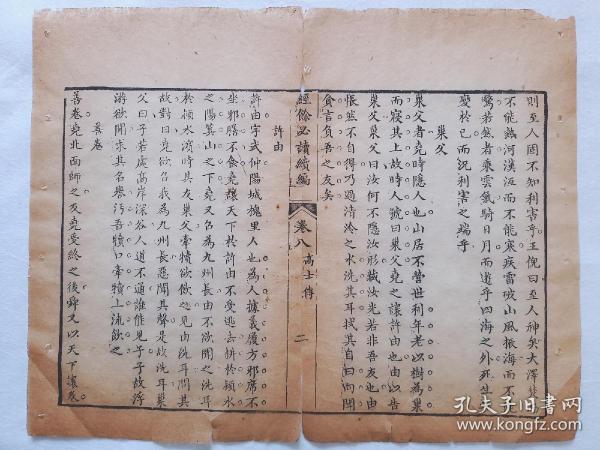 則至人固不知利害乎王倪曰至人神矣大澤焚
不能熱河漢沍而不能寒疾雷破山風振海而不
驚若然者乘雲氣騎日月而遊乎四海之外死生
變於己而況利害之端乎
巢父
巢父者堯時隱人也山居不營世利年老以樹爲巢
而寢其上故時人號曰巢父堯之讓許由也由以告
巢父巢父曰汝何不隱汝形藏汝光若非吾友也由
悵然不自得乃過清泠之水洗其耳拭其目曰向聞
貪言負吾之友矣
經餘必讀續編
卷八
高士傳
二
許由
許由字武仲陽城槐里人也爲人據義履方邪席不
坐邪膳不食堯讓天下於許由不受逃去耕於潁水
之陽箕山之下堯又召爲九州長由不欲聞之洗耳
於潁水濱時其友巢父牽犢欲飲之見由洗耳問其
故對曰堯欲召我爲九州長惡聞其聲是故洗耳巢
父曰子若處高岸深谷人道不通誰能見子子故浮
游欲聞求其名譽污吾犢口牽犢上流飲之
善卷
善卷堯北面師之及堯受終之後舜又以天下讓卷
孔夫子旧书网
www.kongfz.com